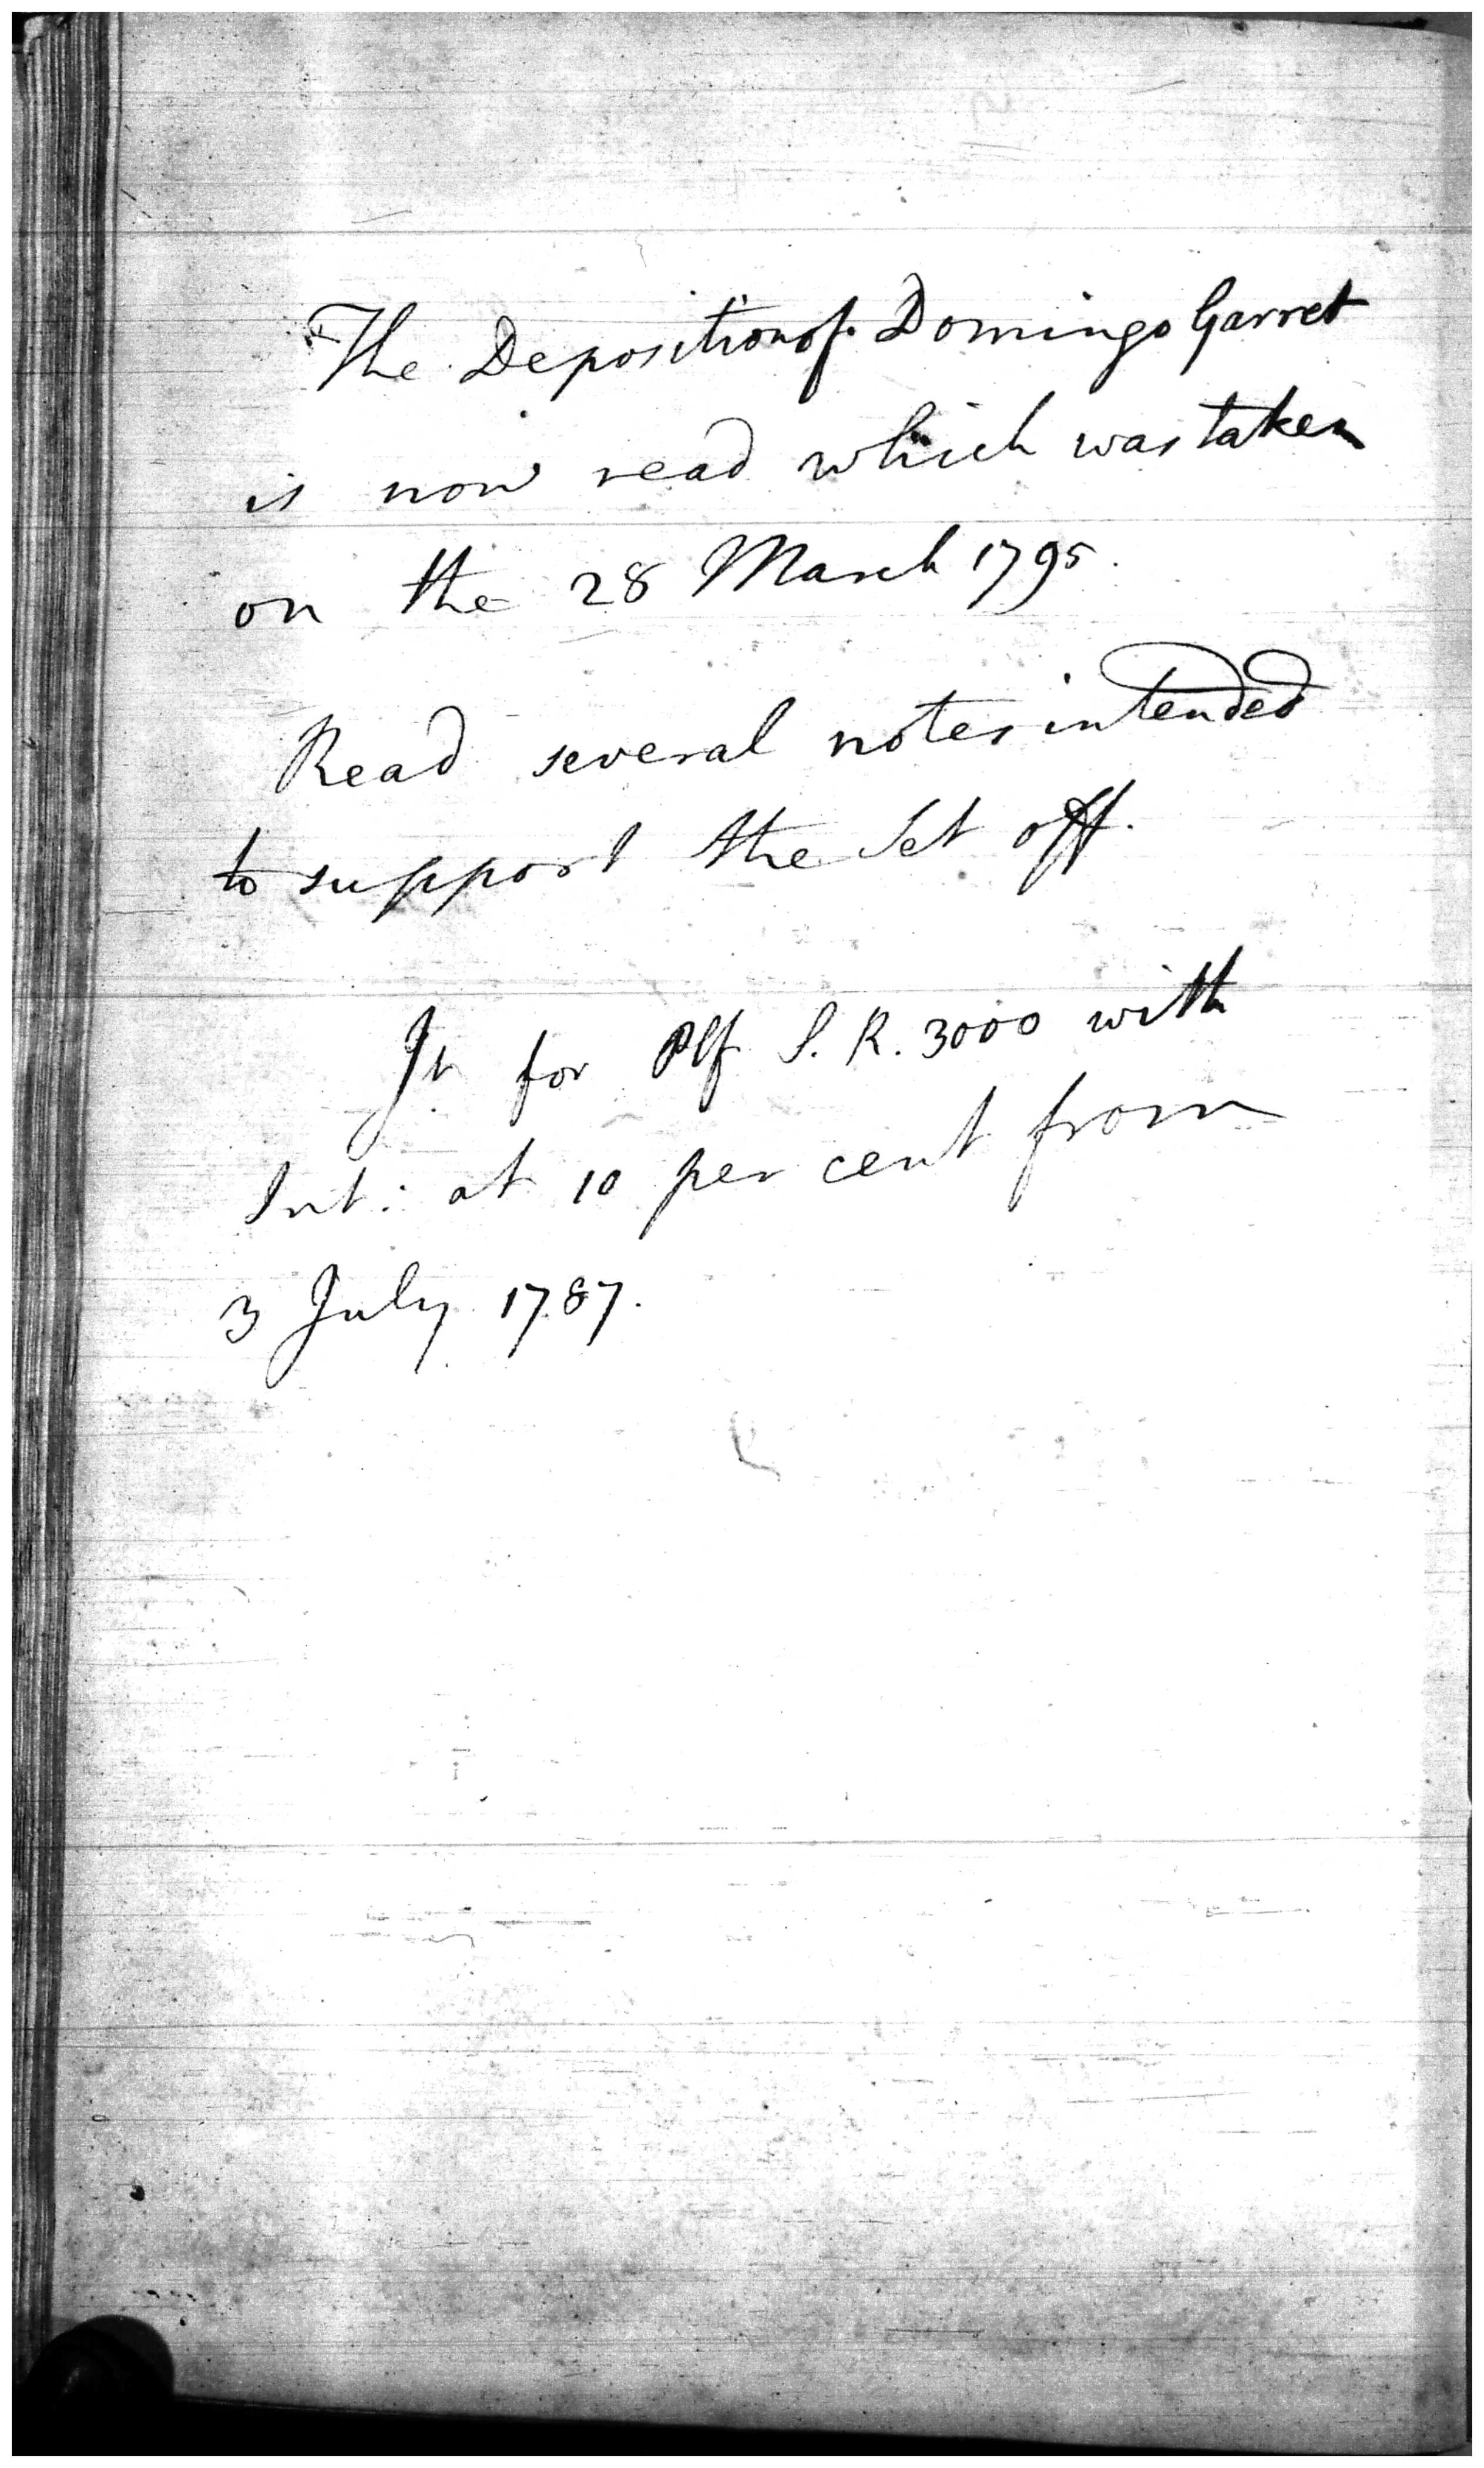 The Deposition of Domingo Garret
is now read which was taken
on the 28 March 1795.
Read several notes intended
to support the Set off.
Jt for Plf S. R. 3000 with
Int: at 10 per cent from
3 July 1787.